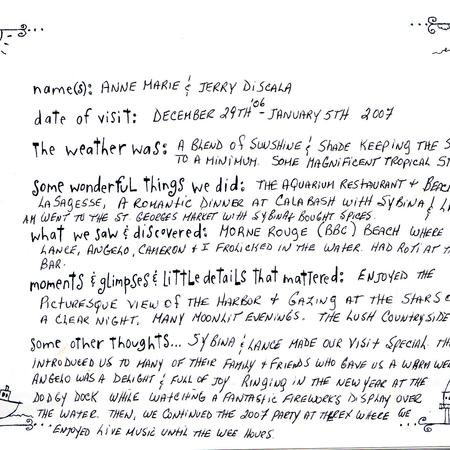 name(s): ANNE MARIE & JERRY DISCALA
date of visit: DECEMBER 29TH '06 - JANUARY 5TH 2007
The weather was: A BLEND OF SUNSHINE & SHADE KEEPING THE S
TO A MINIMUM. SOME MAGNIFICENT TROPICAL
some wonderful things we did: THE AQUARIUM RESTAURANT + BEAC
LASAGESSE, A ROMANTIC DINNER AT CALABASH WITH SYBINA & L
AM WENT TO THE ST. GEORGES MARKET WITH SYBINA & BOUGHT SPICES.
what we saw & discovered: MORNE ROUGE (BBC) BEACH WHERE
LANCE, ANGELO, CAMERON & I FROLICKED IN THE WATER. HAD ROTI AT
BAR.
moments & glimpses & little details that mattered: ENJOYED THE
PICTURESQUE VIEW OF THE HARBOR + GAZING AT THE STARS
A CLEAR NIGHT. MANY MOONLIT EVENINGS. THE LUSH COUNTRYSIDE
some other thoughts... SYBINA & LANCE MADE OUR VISIT SPECIAL. TH
INTRODUCED US TO MANY OF THEIR FAMILY & FRIENDS WHO GAVE US A WARM
ANGELO WAS A DELIGHT & FULL OF JOY. RINGING IN THE NEW YEAR AT THE
DODGY DOCK WHILE WATCHING A FANTASTIC FIREWORKS DISPLAY OVER
THE WATER. THEN, WE CONTINUED THE 2007 PARTY AT WHERE WE
ENJOYED LIVE MUSIC UNTIL THE WEE HOURS.